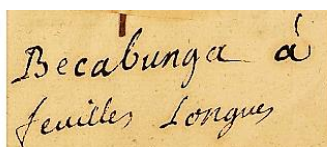 Becabunga á
feuilles Longues